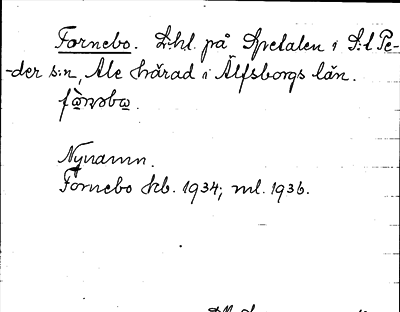 Fornebo. Lhl. på Spetalen i S:t Pe-
-der s:n, Ale härad i Älfsborgs län.
Nynamn.
Fornebo kb. 1934; ml. 1936.